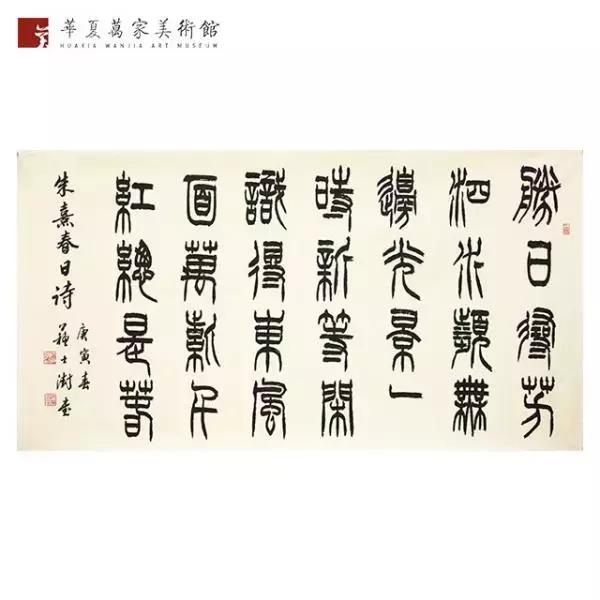 華夏萬家美術館
HUAXIA WANJIA ART MUSEUM
勝日尋芳
泗水瀕無
邊光景一
時新等閑
識得東風
面萬紫千
紅總是春
朱熹春日诗
庚寅春
蘇士澍書